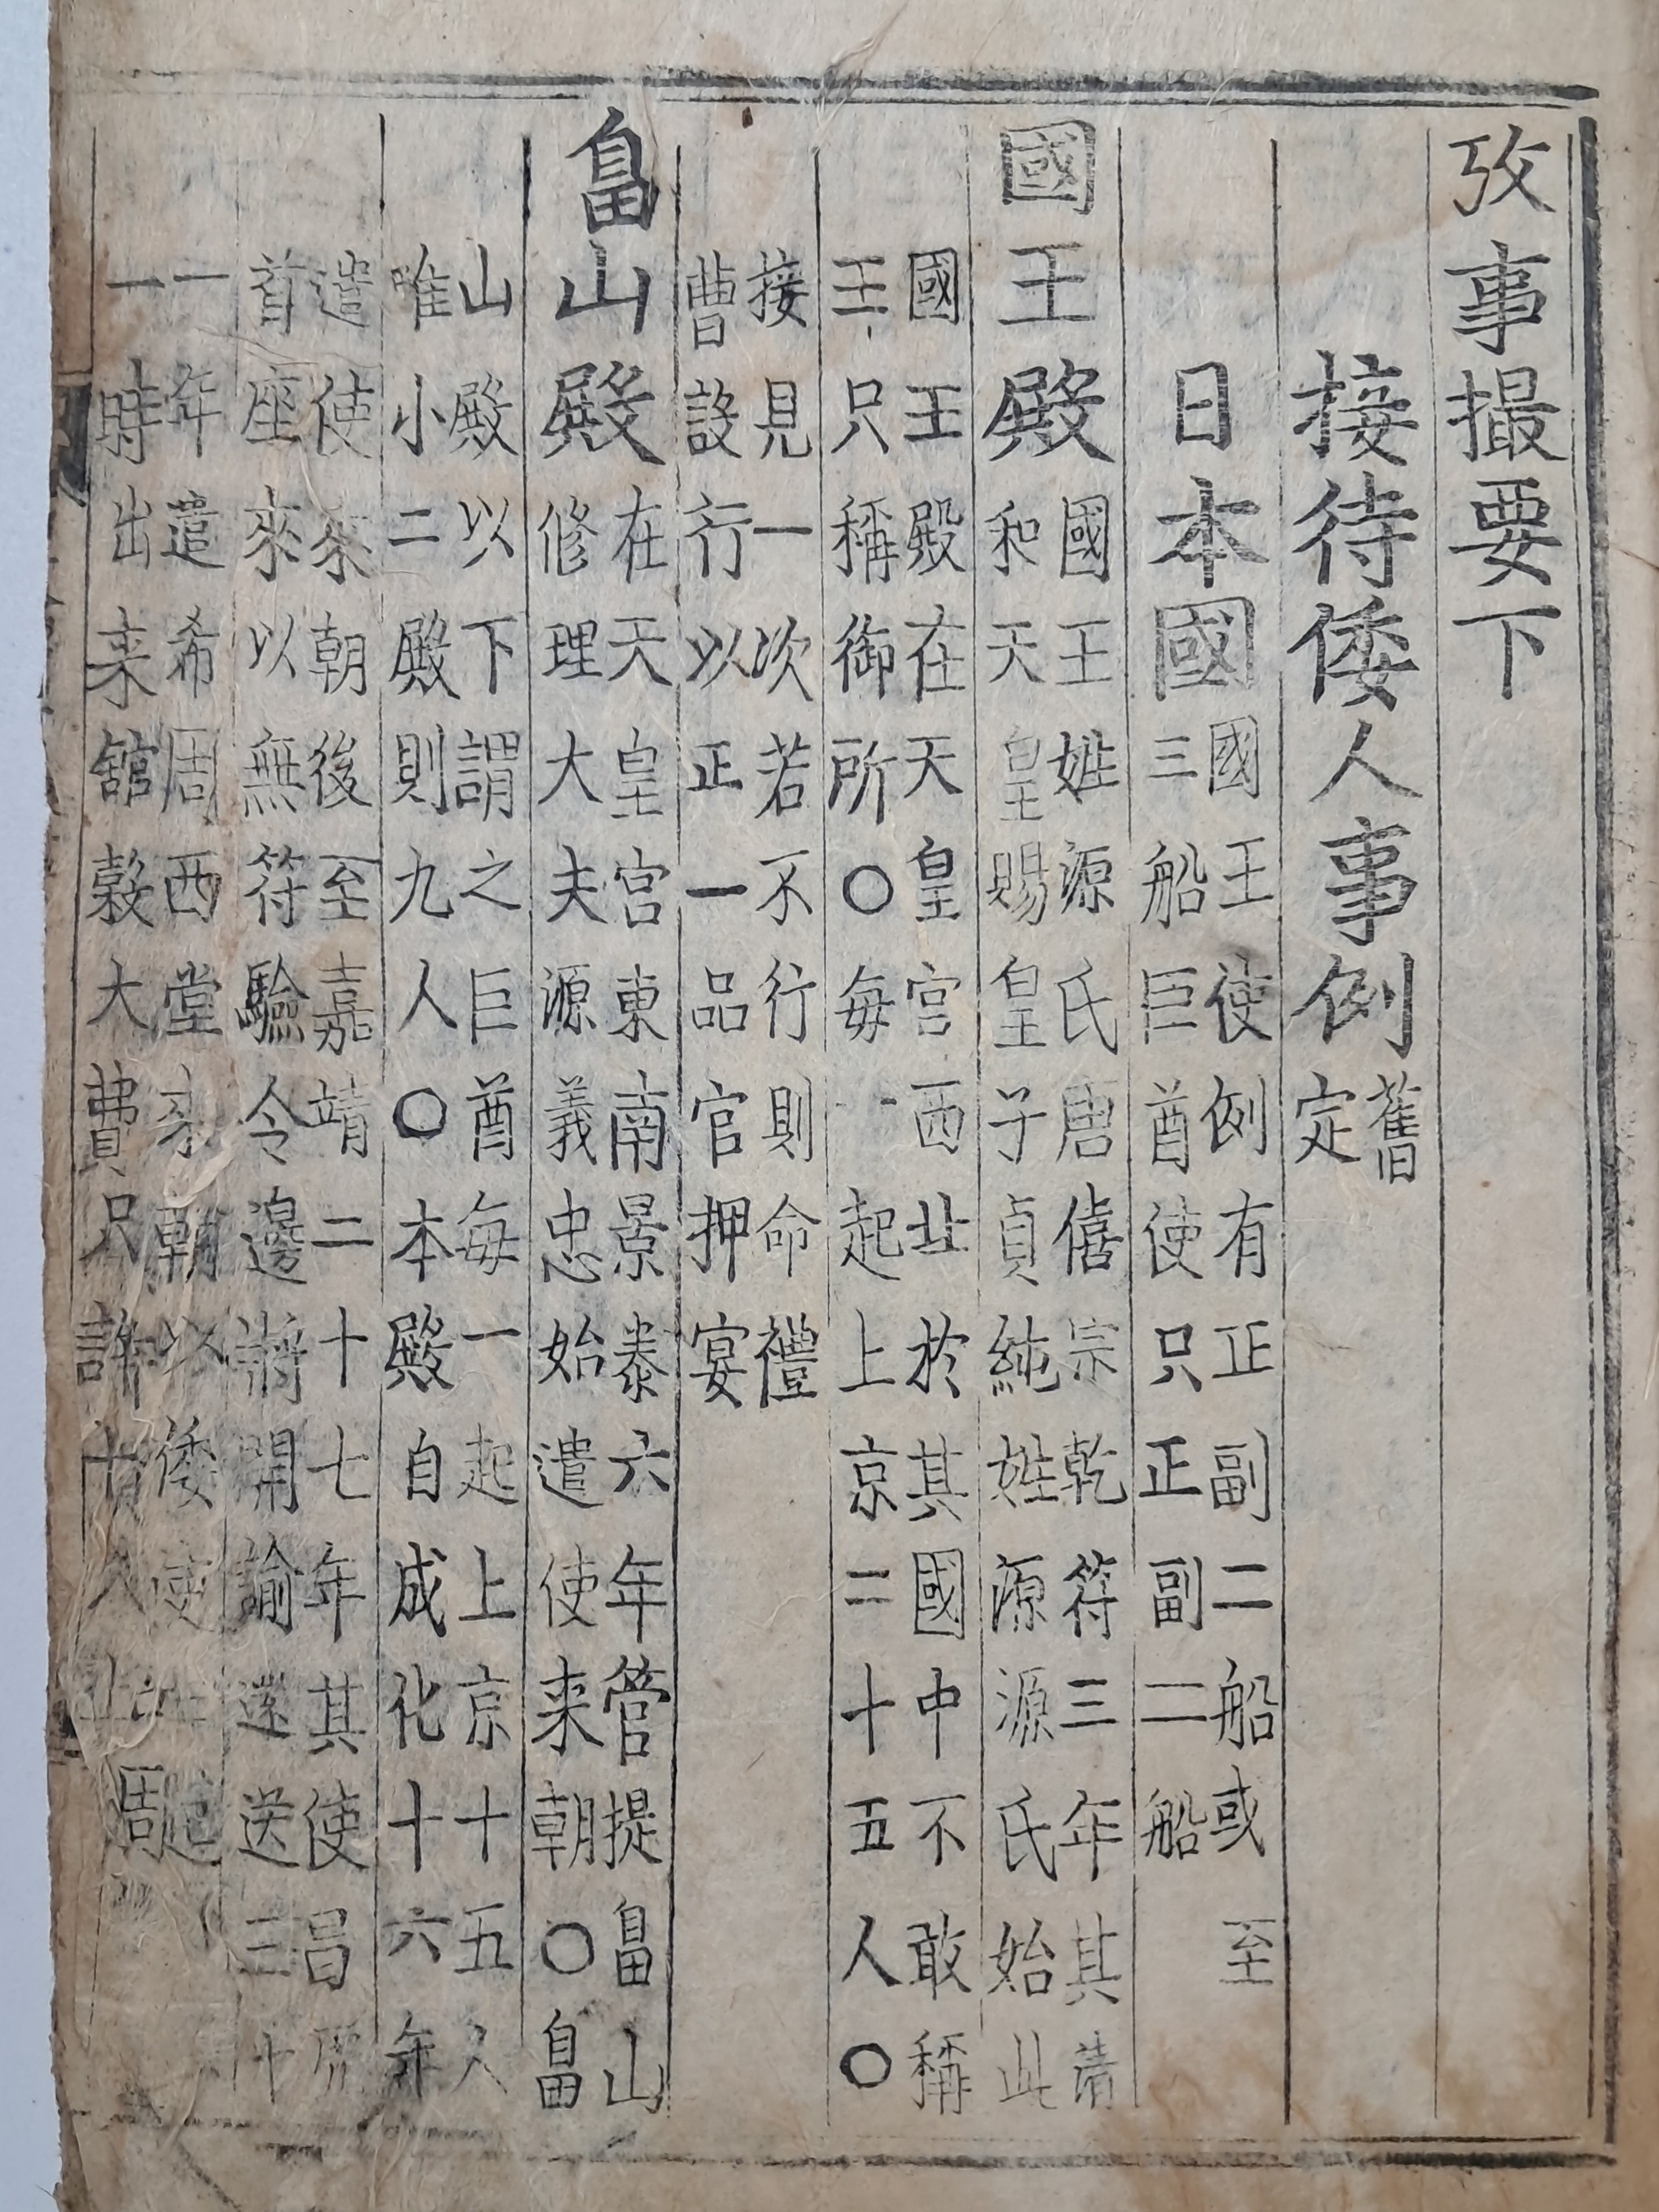 攷事撮要下
接待倭人事例 舊
定
日本國 國王使例有正副二船或至
三船巨酋使只正副二船
國王殿 國王姓源氏唐僖宗乾符三年其
和天皇賜皇子貞純姓源源氏始此
國王殿在天皇宮西北於其國中不敢稱
王只稱御所○每一起上京二十五人○
接見一次若不行則命禮
曹設行以正一品官押宴
畠山殿 在天皇宮東南景泰六年管提畠山
修理大夫源義忠始遣使来朝○畠
山殿以下謂之巨酋每一起上京十五人
唯小二殿則九人○本殿自成化十六年
遣使來朝後至嘉靖二十七年其使昌
首座來以無符驗令邊將開諭還送三十
一年遣希周西堂來朝以倭使
一時出来舘穀大費只許 周